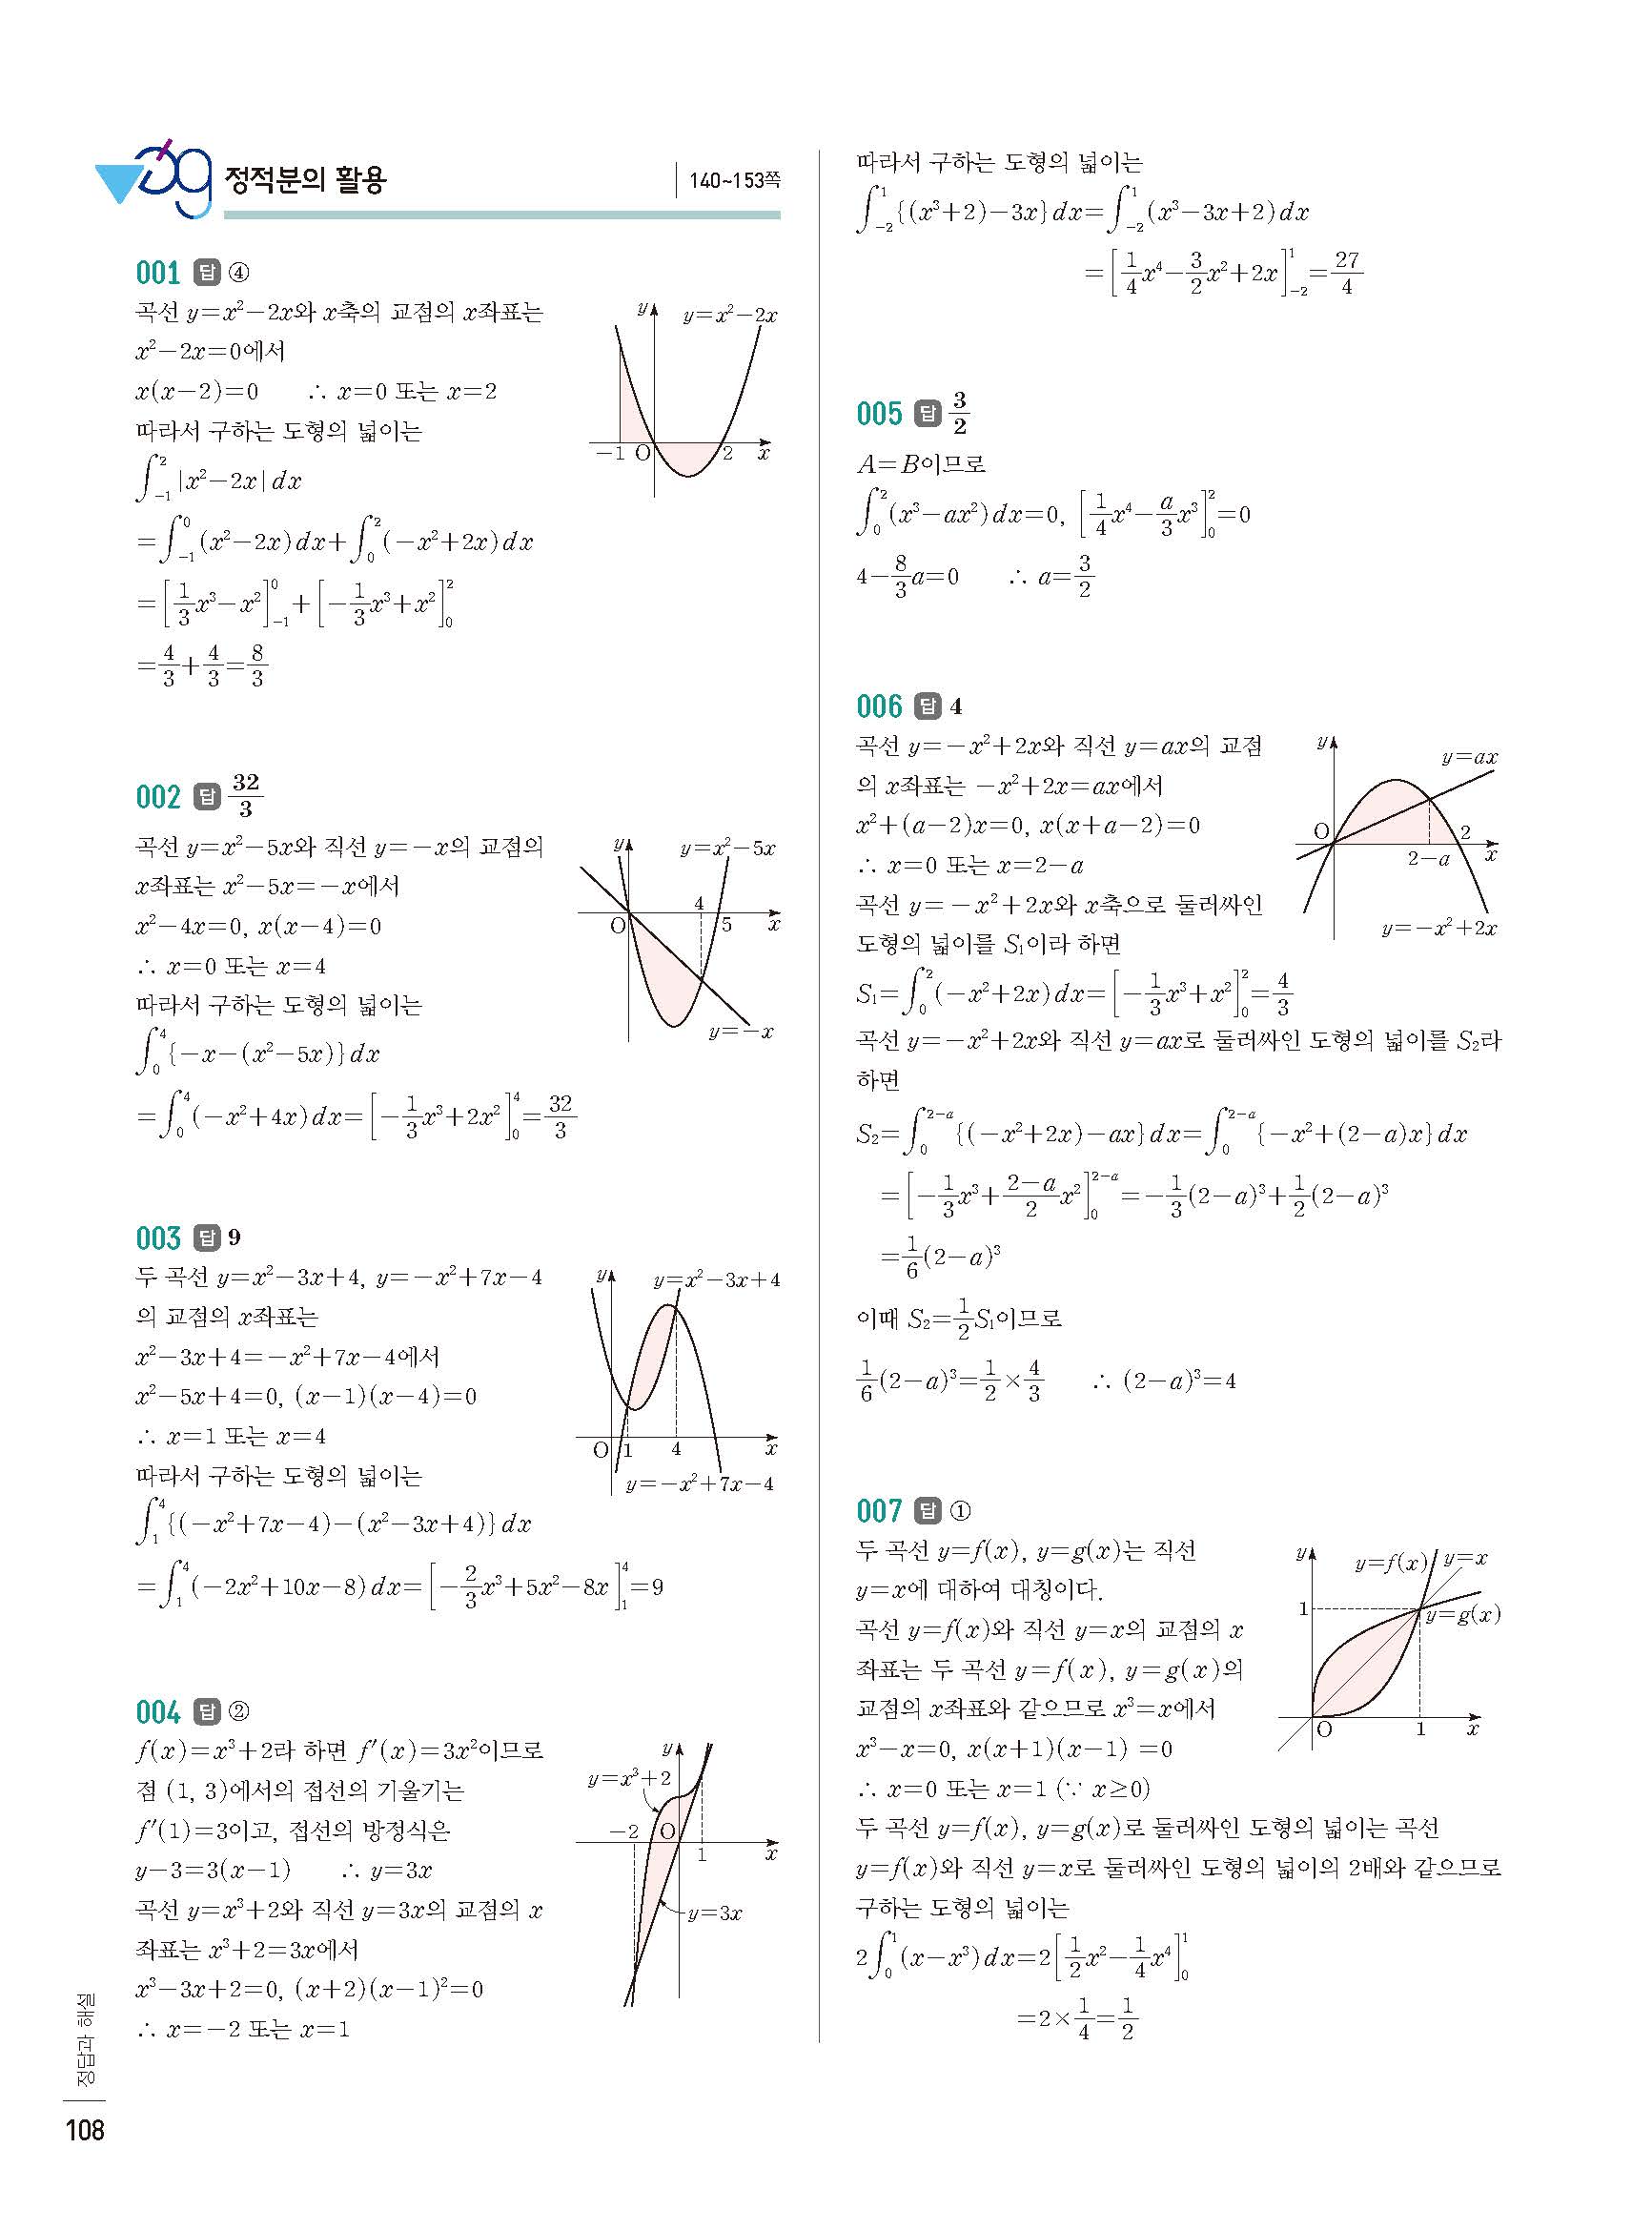 09 정적분의 활용
140~153쪽
001 답 ④
곡선 y=x²-2x와 x축의 교점의 x좌표는
x²-2x=0에서
x(x-2)=0 ∴ x=0 또는 x=2
따라서 구하는 도형의 넓이는
∫₋₁² |x²-2x| dx
=∫₋₁⁰ (x²-2x)dx+∫₀² (-x²+2x)dx
=[1/3 x³-x²]₋₁⁰+[-1/3 x³+x²]₀²
=4/3+4/3=8/3
y y=x²-2x
-1 O 2 x
002 답 32/3
곡선 y=x²-5x와 직선 y=-x의 교점의
x좌표는 x²-5x=-x에서
x²-4x=0, x(x-4)=0
∴ x=0 또는 x=4
따라서 구하는 도형의 넓이는
∫₀⁴ {-x-(x²-5x)}dx
=∫₀⁴ (-x²+4x)dx=[-1/3 x³+2x²]₀⁴=32/3
y y=x²-5x
4
O 5 x
y=-x
003 답 9
두 곡선 y=x²-3x+4, y=-x²+7x-4
의 교점의 x좌표는
x²-3x+4=-x²+7x-4에서
x²-5x+4=0, (x-1)(x-4)=0
∴ x=1 또는 x=4
따라서 구하는 도형의 넓이는
∫₁⁴ {(-x²+7x-4)-(x²-3x+4)}dx
=∫₁⁴ (-2x²+10x-8)dx=[-2/3 x³+5x²-8x]₁⁴=9
y y=x²-3x+4
O 1 4 x
y=-x²+7x-4
004 답 ②
f(x)=x³+2라 하면 f′(x)=3x²이므로
점 (1, 3)에서의 접선의 기울기는
f′(1)=3이고, 접선의 방정식은
y-3=3(x-1) ∴ y=3x
곡선 y=x³+2와 직선 y=3x의 교점의 x
좌표는 x³+2=3x에서
x³-3x+2=0, (x+2)(x-1)²=0
∴ x=-2 또는 x=1
y
y=x³+2
-2 O
1 x
y=3x
따라서 구하는 도형의 넓이는
∫₋₂¹ {(x³+2)-3x}dx=∫₋₂¹ (x³-3x+2)dx
=[1/4 x⁴-3/2 x²+2x]₋₂¹=27/4
005 답 3/2
A=B이므로
∫₀² (x³-ax²)dx=0, [1/4 x⁴-a/3 x³]₀²=0
4-8/3 a=0 ∴ a=3/2
006 답 4
곡선 y=-x²+2x와 직선 y=ax의 교점
의 x좌표는 -x²+2x=ax에서
x²+(a-2)x=0, x(x+a-2)=0
∴ x=0 또는 x=2-a
곡선 y=-x²+2x와 x축으로 둘러싸인
도형의 넓이를 S₁이라 하면
S₁=∫₀² (-x²+2x)dx=[-1/3 x³+x²]₀²=4/3
곡선 y=-x²+2x와 직선 y=ax로 둘러싸인 도형의 넓이를 S₂라
하면
S₂=∫₀²⁻ᵃ {(-x²+2x)-ax}dx=∫₀²⁻ᵃ {-x²+(2-a)x}dx
=[-1/3 x³+(2-a)/2 x²]₀²⁻ᵃ=-1/3(2-a)³+1/2(2-a)³
=1/6(2-a)³
이때 S₂=1/2 S₁이므로
1/6(2-a)³=1/2×4/3 ∴ (2-a)³=4
y
y=ax
O 2
2-a x
y=-x²+2x
007 답 ①
두 곡선 y=f(x), y=g(x)는 직선
y=x에 대하여 대칭이다.
곡선 y=f(x)와 직선 y=x의 교점의 x
좌표는 두 곡선 y=f(x), y=g(x)의
교점의 x좌표와 같으므로 x³=x에서
x³-x=0, x(x+1)(x-1)=0
∴ x=0 또는 x=1 (∵ x≥0)
두 곡선 y=f(x), y=g(x)로 둘러싸인 도형의 넓이는 곡선
y=f(x)와 직선 y=x로 둘러싸인 도형의 넓이의 2배와 같으므로
구하는 도형의 넓이는
2∫₀¹ (x-x³)dx=2[1/2 x²-1/4 x⁴]₀¹
=2×1/4=1/2
y y=f(x) y=x
1
y=g(x)
O 1 x
정답과 해설
108